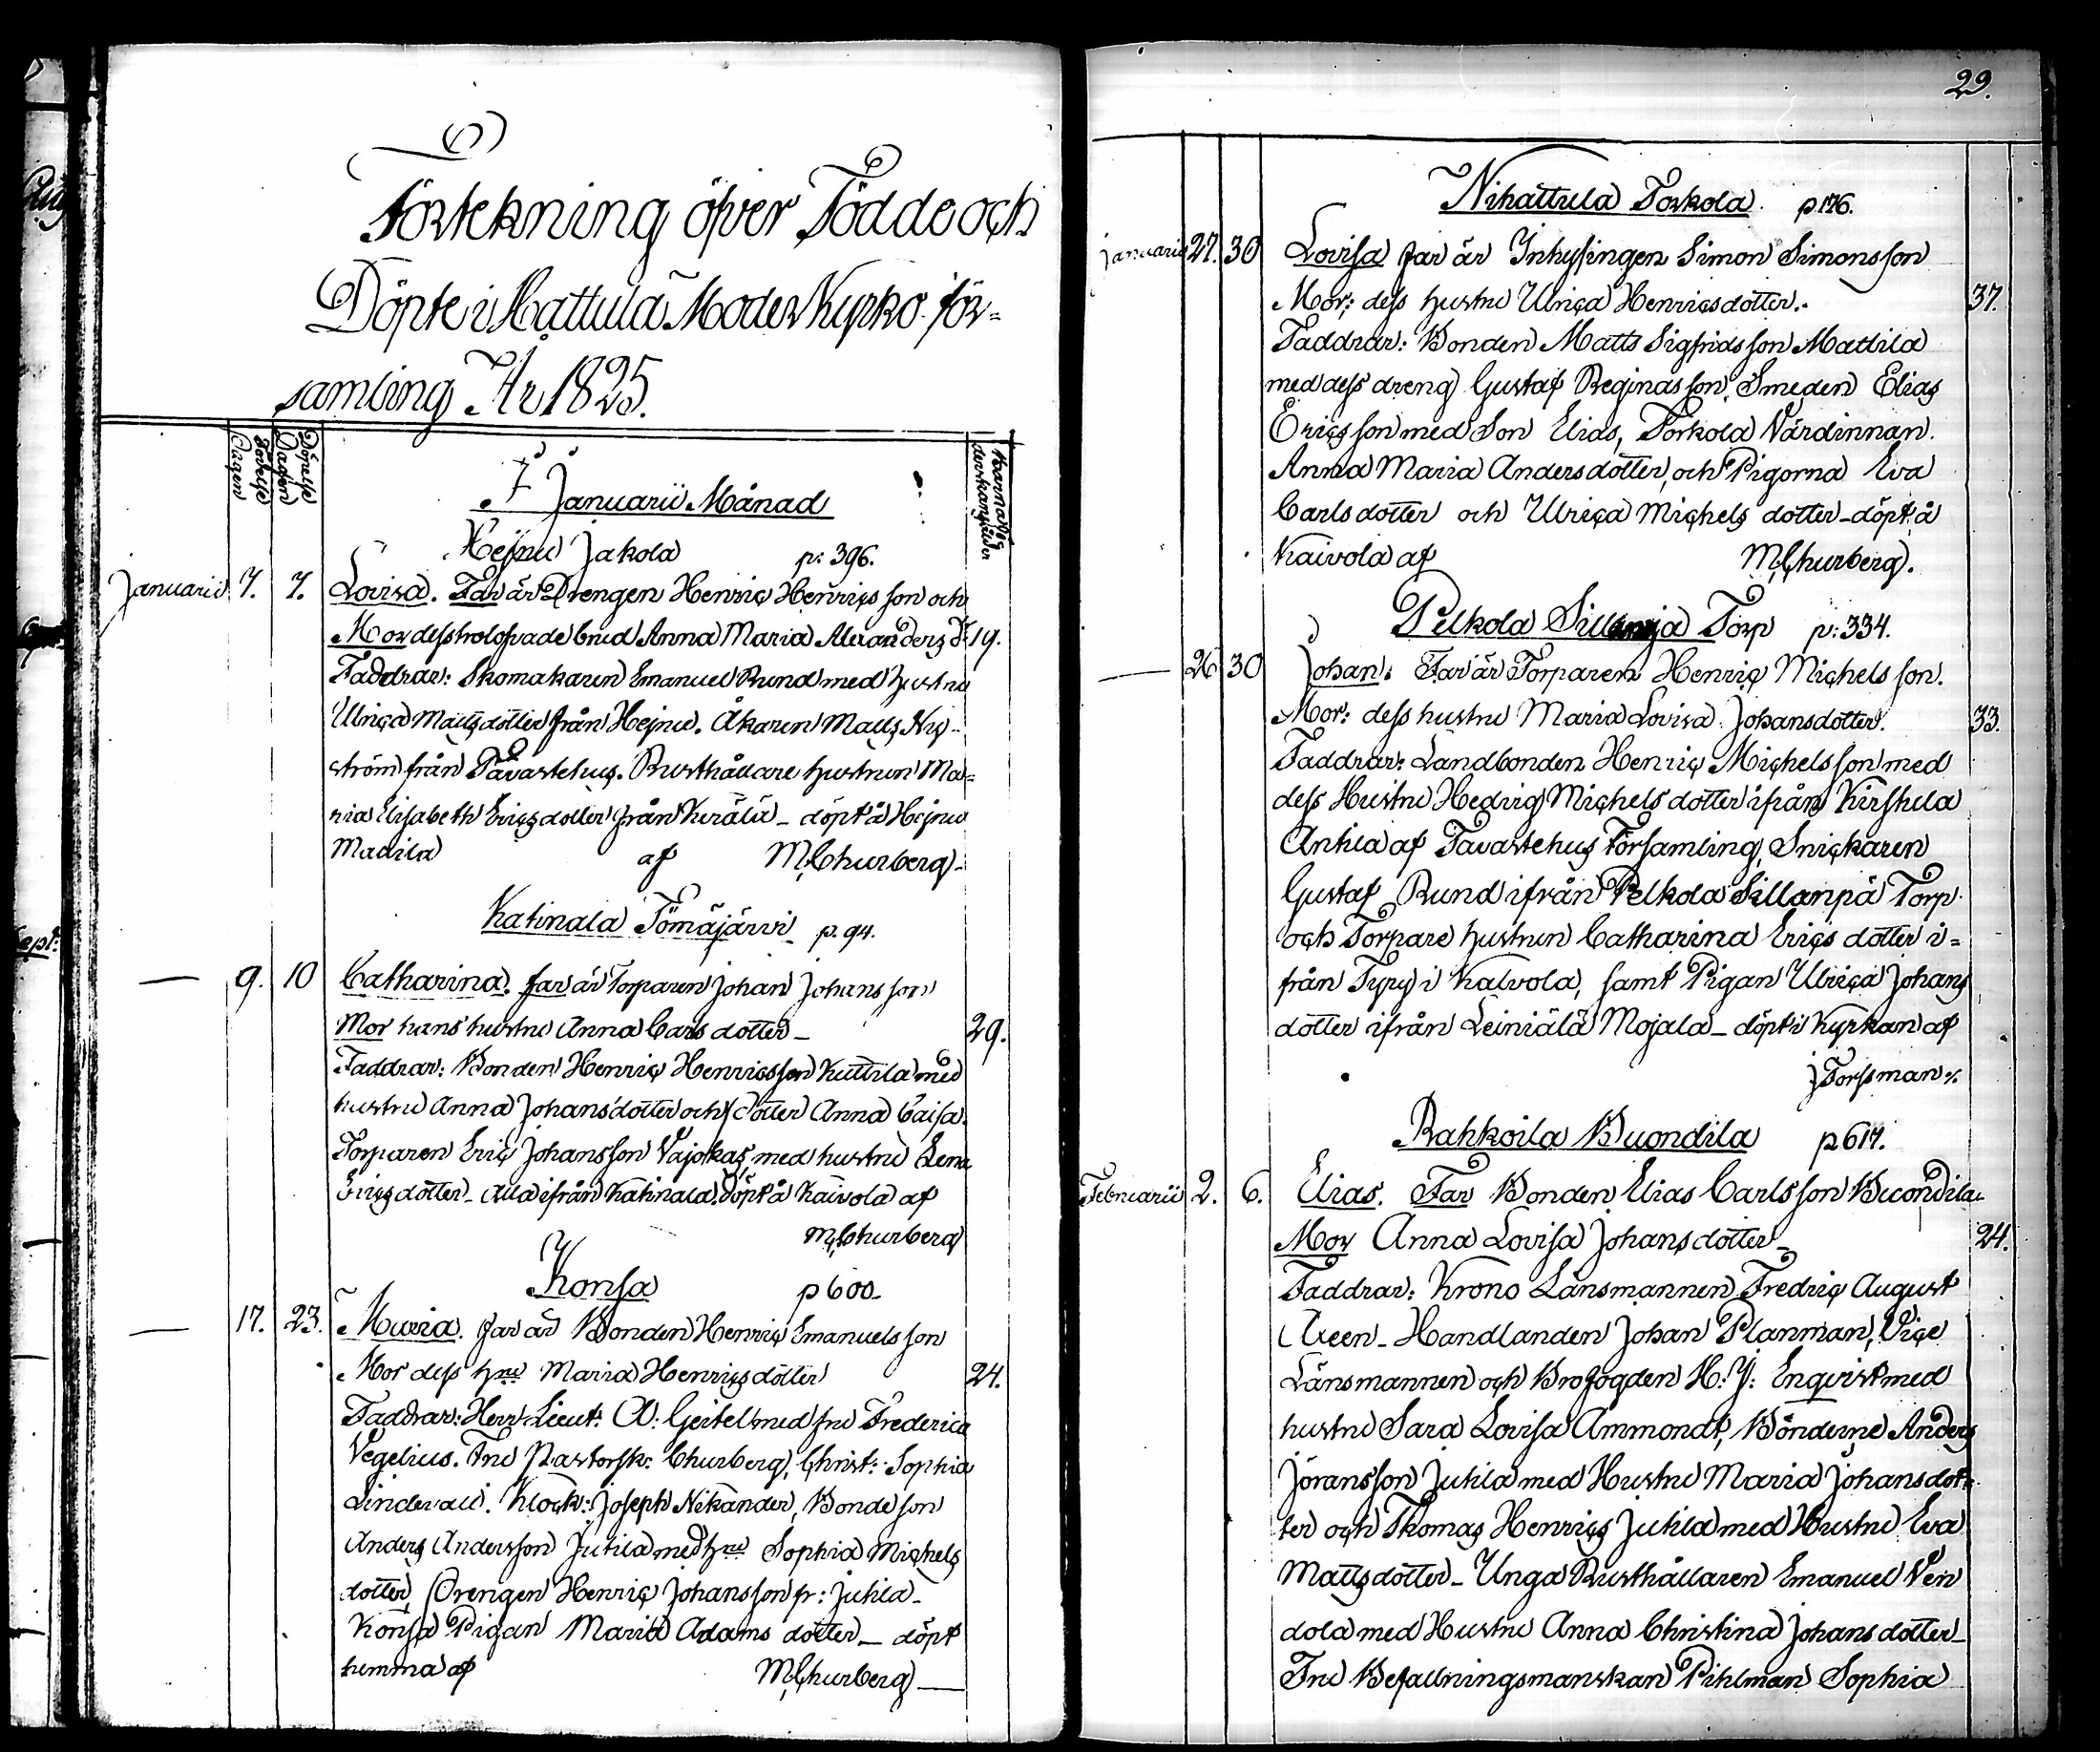 Förtekning öfver Födde och
Döpte i Hattula Moder Kyrko för=
samling År 1825.
Födelse Dagen
Döpelse Dagen
I Januarii Månad
Hejnu Jakola p: 396.
Januarii 7. 7. Lovisa. Far är Drengen Henric Henrics son och
Mor dess trolofvade brud Anna Maria Alexanders dr 19.
Faddrar: Skomakaren Emanuel Rund med hustru
Ulrica Matts dotter från Hejnu. Åkaren Matts Ny-
ström från Tavastehus. Rusthållare hustrun Ma=
ria Elisabeth Erics dotter från Kerälä _ döpt å Hejnu
Mattila af M. Churberg _
Katinala Tömäjärvi p. 94.
— 9. 10 Catharina. Far är Torparen Johan Johans son
Mor hans hustru Anna Carls dotter _ 29.
Faddrar: Bonden Henric Henricsson Kuttila med
hustru Anna Johans dotter och dotter Anna Caisa.
Torparen Eric Johansson Vajokas, med hustru Lena
Erics dotter _ alla ifrån Katinala. Döpt å Kaivola af
M. Churberg
Konsa p 600.
— 17. 23. Maria. Far är Bonden Henric Emanuels son
Mor dess hru Maria Henrics dotter 24.
Faddrar: Herr Lieut: A: Geitel med fru Frederica
Vegelius. Fru Pastorsk: Churberg, Christ: Sophia
Lindevall. Klock: Joseph Nikander, Bonde son
Anders Andersson Jutila med hru Sophia Michels
dotter, Drengen Henric Johansson fr: Jutila _
Konsa Pigan Maria Adams dotter _ döpt
hemma af M. Churberg _
29.
Nihattula Torkola. p 176.
Januarii 27. 30 Lovisa Far är Inhysingen Simon Simonsson
Mor: dess hustru Ulrica Henrics dotter. 37.
Faddrar: Bonden Matts Sigfrids son Mattila
med dess dreng Gustaf Reginas son, Smeden Elias
Erics son med Son Elias, Torkola Värdinnan
Anna Maria Anders dotter, och Pigorna Eva
Carls dotter och Ulrica Michels dotter _ döpt å
Kaivola af M. Churberg.
Pelkola Torp p: 334.
— 26 30 Johan. Far är Torparen Henric Michels son.
Mor: dess hustru Maria Lovisa Johans dotter. 33.
Faddrar: Landbonden Henric Michels son med
dess Hustru Hedvig Michels dotter ifrån Kirstula
Antila af Tavastehus Församling, Snickaren
Gustaf Rund ifrån Pelkola Sillanpä Torp
och Torpare hustrun Catharina Erics dotter i=
från Tyry i Kalvola, samt Pigan Ulrica Johans
dotter ifrån Leiniälä Mojala _ döpt i Kyrkan af
J Forssman
Rahkoila Buondila p 617.
Februarii 2. 6. Elias. Far Bonden Elias Carlsson Buondila
Mor Anna Lovisa Johans dotter _ 24.
Faddrar: Krono Länsmannen Fredric August
Areen _ Handlanden Johan Planman, Vice
Länsmannen och Brofogden H: J: Enqvist med
hustru Sara Lovisa Ammondt, Bönderne Anders
Göransson Jutila med Hustru Maria Johansdot=
ter och Thomas Henrics Jutila med Hustru Eva
Matts dotter _ Unga Rusthållaren Emanuel Ven
dola med Hustru Anna Christina Johans dotter _
Fru Befallningsmanskan Pihlman Sophia